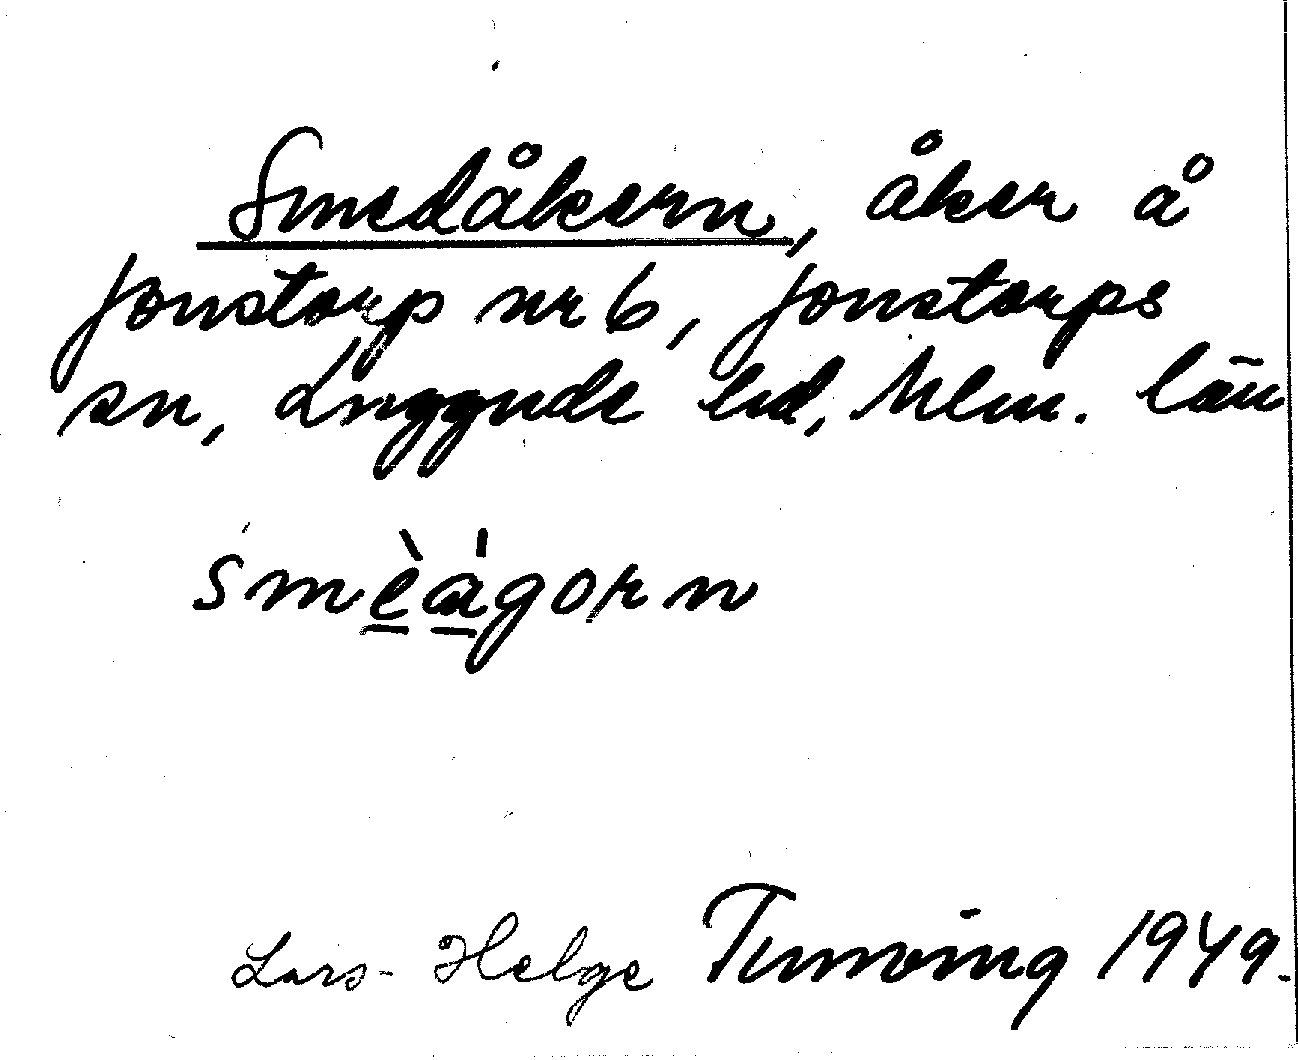 Smedåkern, åker å
Jonstorp nr 6, Jonstorps
sn, Luggude hd, Mlm. län
smèàgorn
Lars-Helge Tunving 1949.